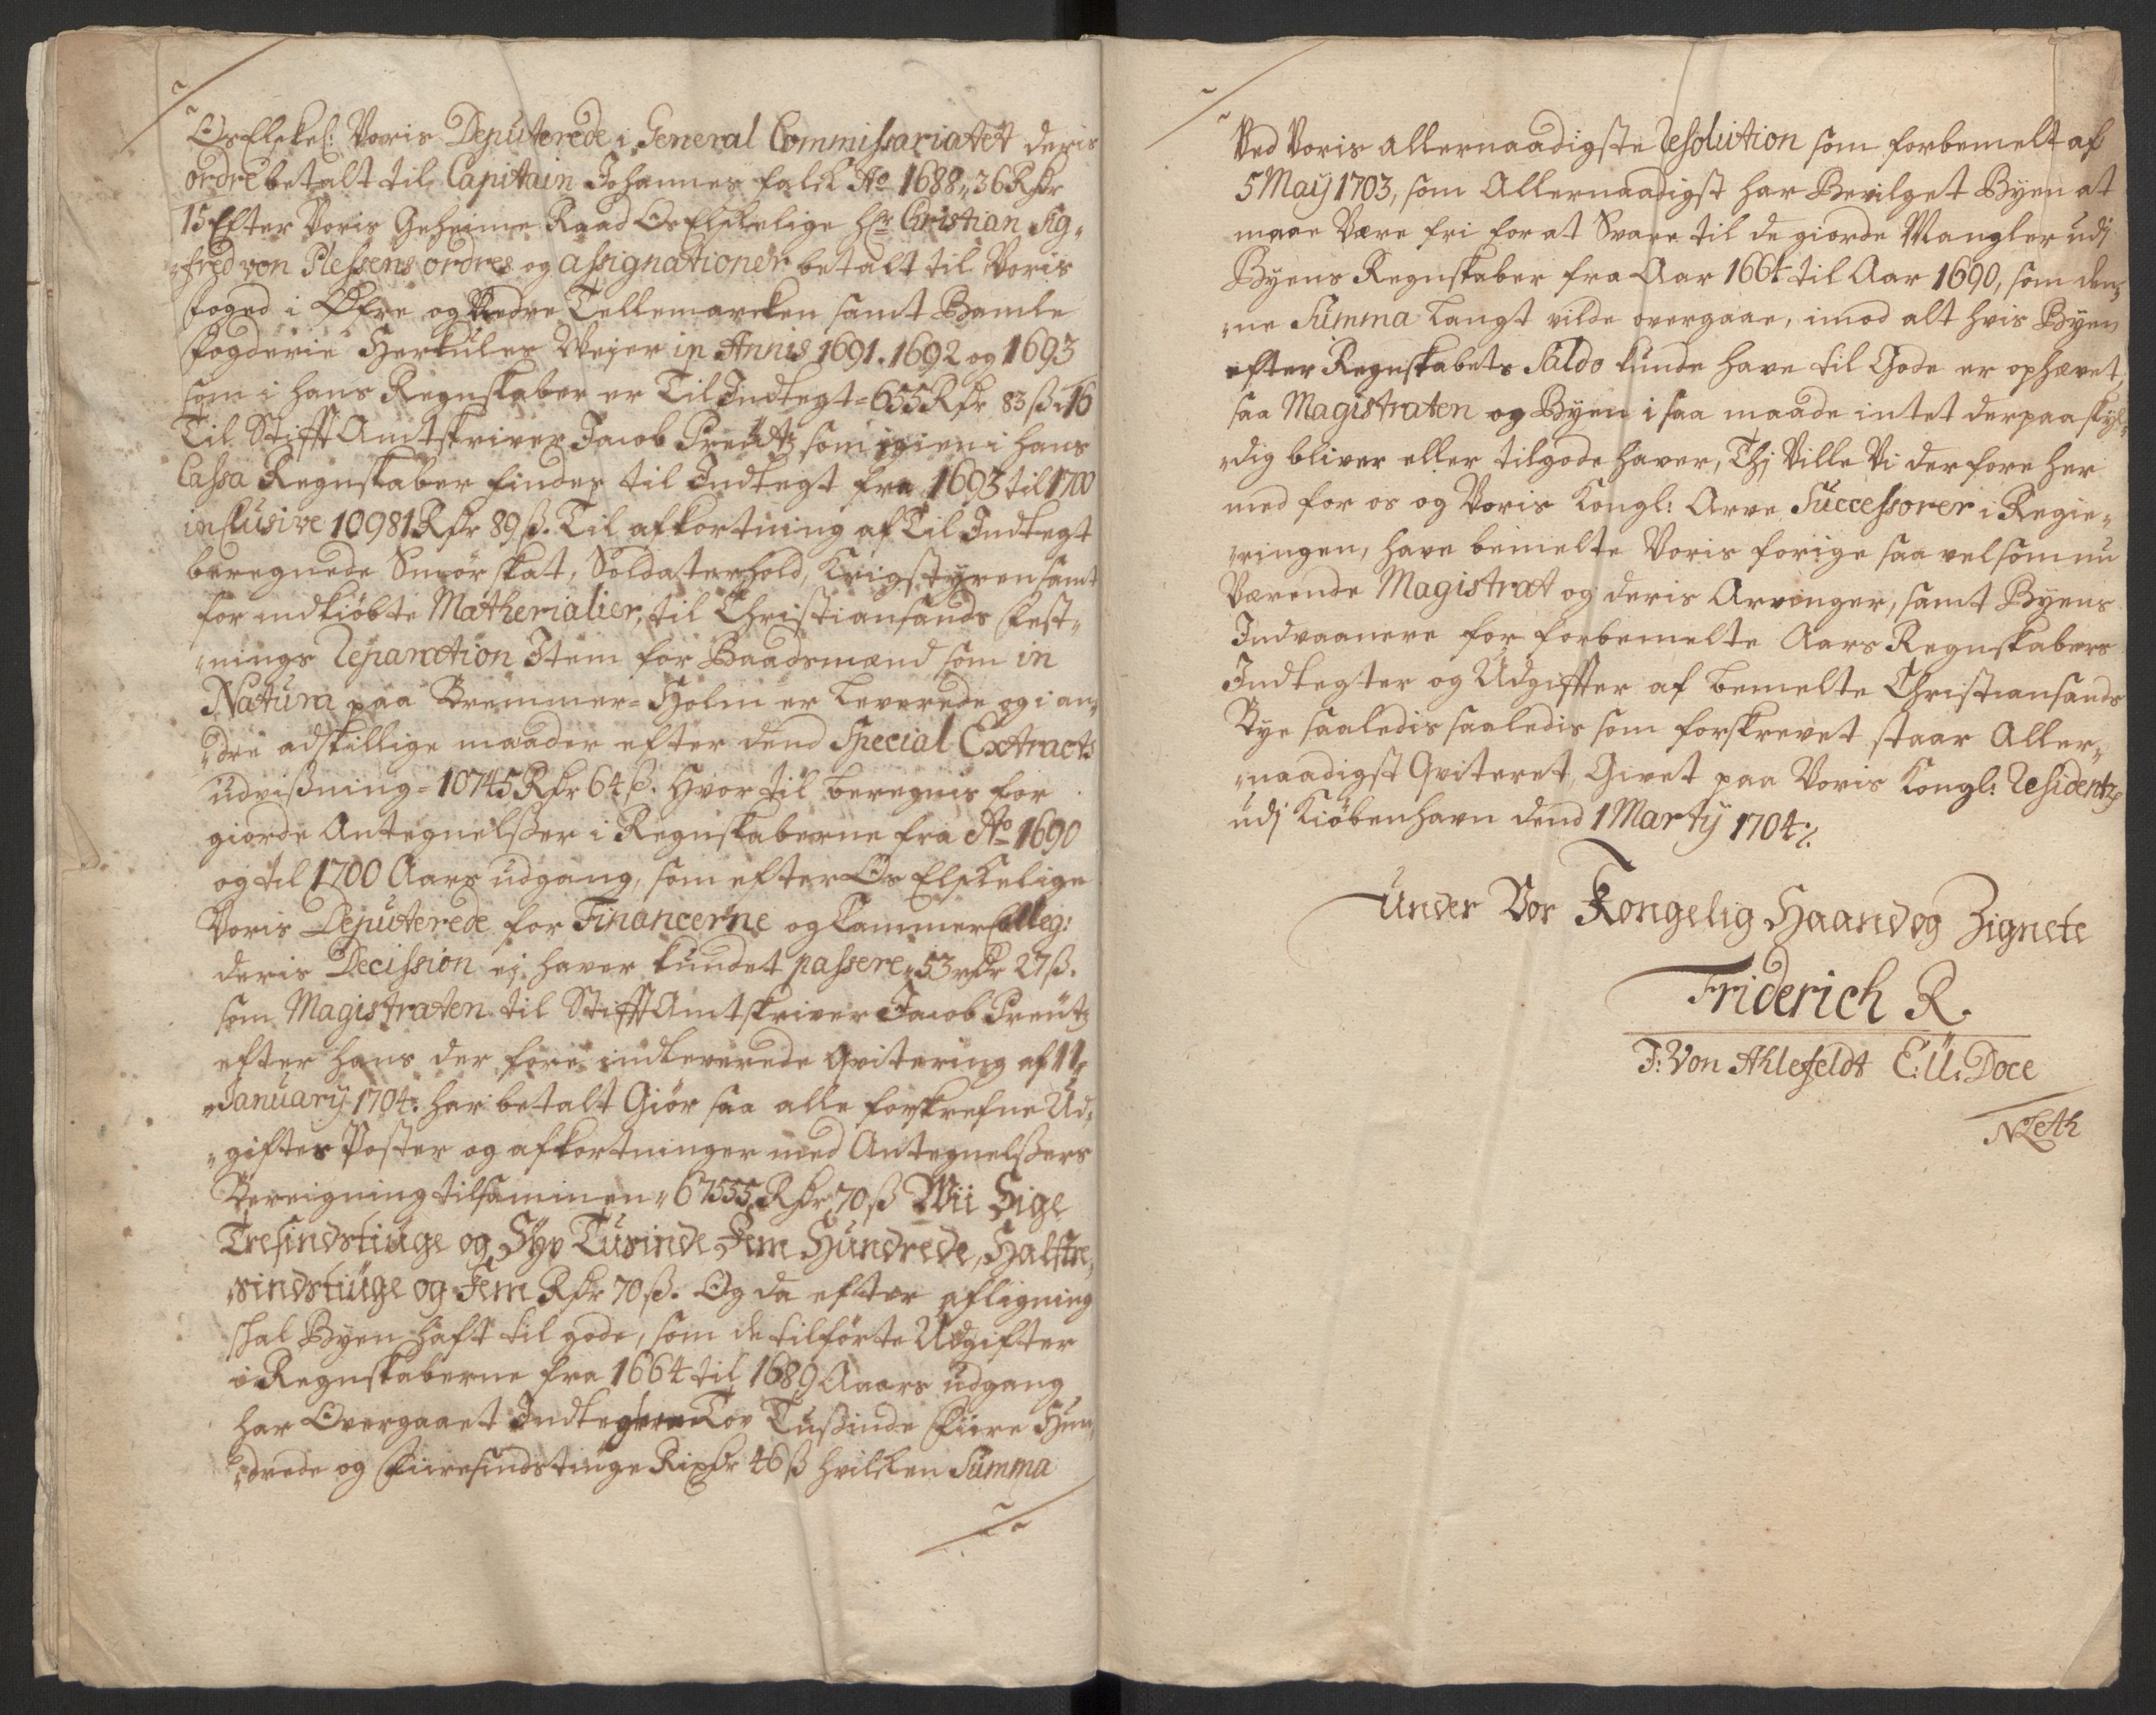 Os Elskel: Voris Deputerede i General Commissariatet deris
ordre betalt til Capitain Johannes Falck Ao 1688 „ 36 Rdr
15 Efter Voris Geheime Raad Os Elskelige Hr Christian Sig„
„fred von Plessens ordres og assignationer betalt til Voris
foged i Øfre og Nedre Tellemarcken samt Bamle
fogderie Herkules Weyer in Annis 1691. 1692 og 1693
som i hans Regnskaber er Til Indtegt = 655 Rdr 83 ß 16
Til StifftAmtskriver Jacob Preutz som igien i hans
Cassa Regnskaber findes til Indtegt fra 1693 til 1700
inclusive 10981 Rdr 89 ß. Til afkortning af Til Indtegt
beregnede Smörskat, Soldaterhold, Krigstyren samt
for indkiöbte Matherialier, til Christiansands fest„
„nings Reparation Item for Baadsmænd som in
Natura paa Bremmer=Holm er leverede og i an„
„dre adskillige maader efter dend Special Extracts
udvißning = 10745 Rdr 64 ß. Hvor til beregnis for
giorde Antegnelßer i Regnskaberne fra Ao 1690
og til 1700 Aars udgang, som efter Os Elskelige
Voris Deputerede for Financerne og Cammer Colleg:
deris Decission ej haver kundet passere „ 53 Rdr 27 ß.
som Magistraten til StifftAmtskriver Jacob Preutz
efter hans der fore indleverede Qvitering af 11
January 1704. har betalt Giör saa alle forskrefne Ud„
„giftes Poster og afkortninger med Antegnelßers
Bereigning tilsammen „ 67555 Rdr 70 ß Wii Sige
Tresindstiuge og Syv Tusinde Fem Hundrede, Halftre„
„sindstiuge og Fem Rdr 70 ß. Og da efter afligning
skal Byen haft til gode, som de tilförte Udgifter
i Regnskaberne fra 1664 til 1689 Aars udgang
har Overgaaet Indtegterne Tov Tußinde fiire Hun„
„drede og fiiresindstiuge Rixdr 46 ß hvilcken Summa
Ved Voris allernaadigste Resolution som forbemelt af
5 May 1703, som Allernaadigst har Bevilget Byen at
maae Være fri for at Svare til de giorde Mangler udj
Byens Regnskaber fra Aar 1664 til Aar 1690, som den„
„ne Summa langt vilde overgaae, imod alt hvis Byen
efter Regnskabets Saldo kunde have til Gode er ophævet,
saa Magistraten og Byen i saa maade intet derpaa skyl„
„dig bliver eller tilgode haver, Thj Ville Vi derfore her
med for os og Voris Kongl: Arve Successorer i Regie„
„ringen, have bemelte Voris forige saa vel som nu
Værende Magistrat og deris Arvinger, samt Byens
Indvaanere for forbemelte Aars Regnskabers
Indtegter og Udgiffter af bemelte Christiansands
Bye saaledis saaledis som forskrevet staar Aller„
„naadigst Qviteret, Givet paa Voris Kongl: Residentz
udj Kiöbenhavn dend 1 Marty 1704.
Under Vor Kongelig Haand og Zignete
Friderich R.
F: Von Ahlefeldt E: U: Doce
N Leth